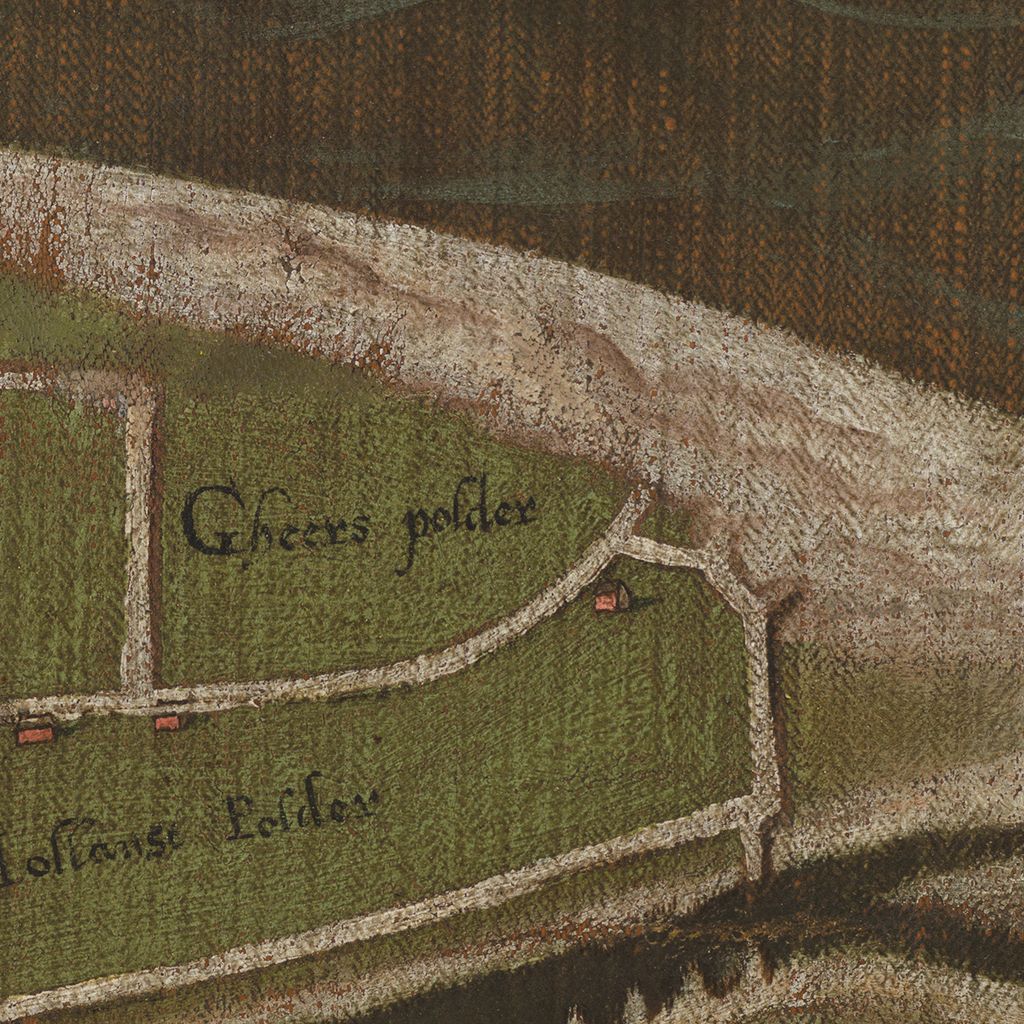 Gheers polder
Hollansе Polder